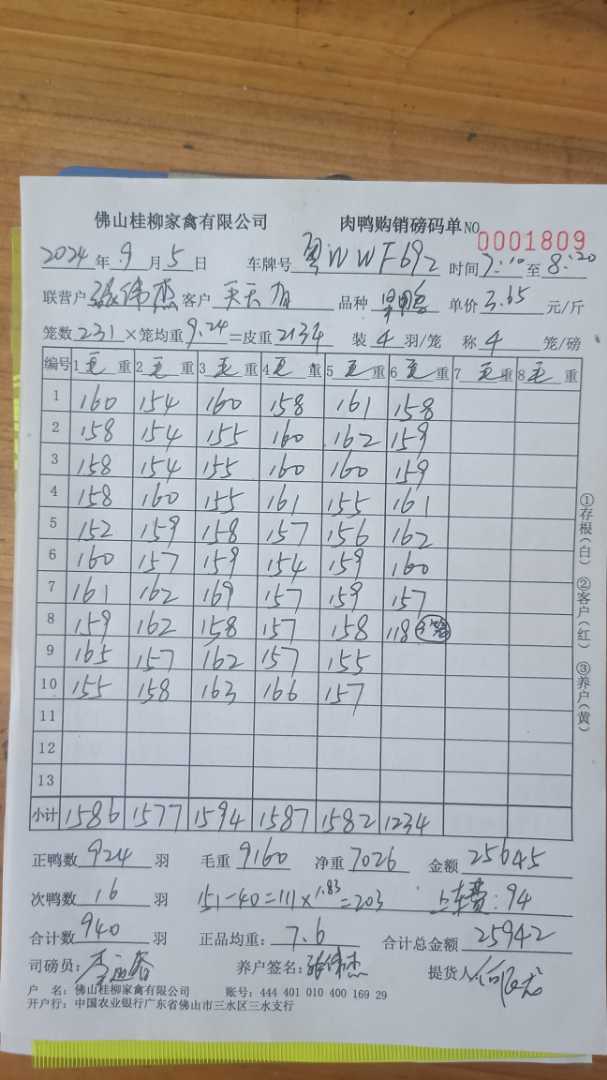 佛山桂柳家禽有限公司 肉鸭购销磅码单 NO 0001809
2024年9月5日 车牌号 粤WWF692 时间7:10至8:20
联营户 张伟杰 客户 天天有 品种 单价3.65元/斤
笼数231×笼均重9.24=皮重2134 装4羽/笼 称4笼/磅
编号 1毛重 2毛重 3毛重 4毛重 5毛重 6毛重 7毛重 8毛重
1 160 154 160 158 161 158
2 158 154 155 160 162 159
3 158 154 155 160 160 159
4 158 160 155 161 155 161
5 152 159 158 157 156 162
6 160 157 159 154 159 160
7 161 162 169 157 159 157
8 159 162 158 157 158 118
9 165 157 162 157 155
10 155 158 163 166 157
11
12
13
小计 1586 1577 1594 1587 1582 1234
①存根(白) ②客户(红) ③养户(黄)
正鸭数924羽 毛重9160 净重7026 金额25645
次鸭数16羽 151-40=111×1.83=203 上车费:94
合计数940羽 正品均重:7.6 合计总金额25942
司磅员: 养户签名:张伟杰 提货人
户 名:佛山桂柳家禽有限公司 账号:444 401 010 400 169 29
开户行:中国农业银行广东省佛山市三水区三水支行